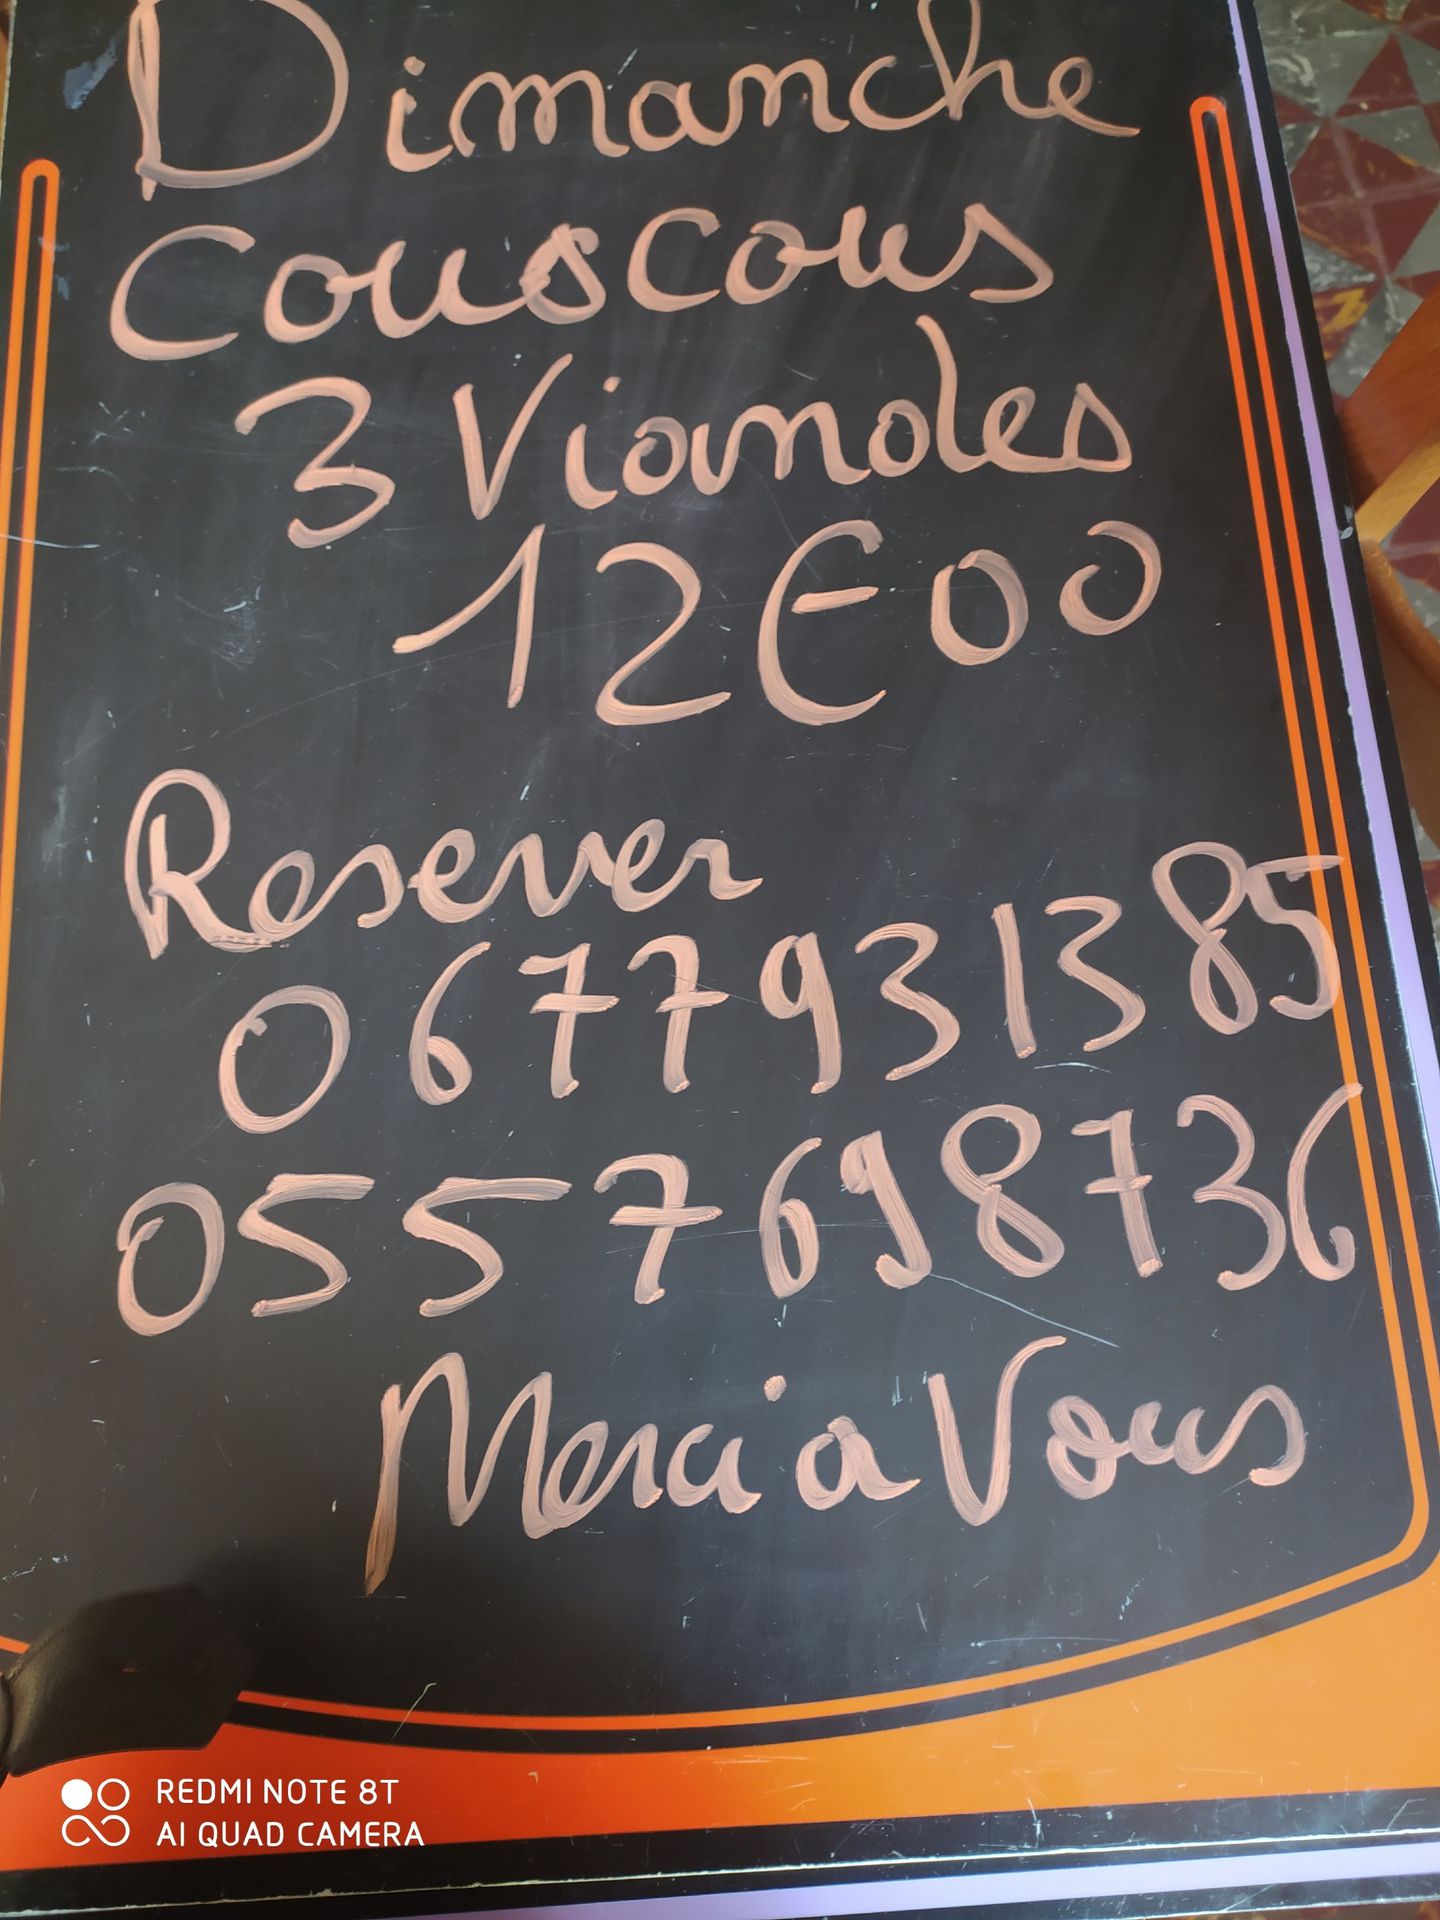 Dimanche
Couscous
3 Viandes
12€00
Reserver
0677931385
0557698736
Merci a Vous
REDMI NOTE 8T
AI QUAD CAMERA